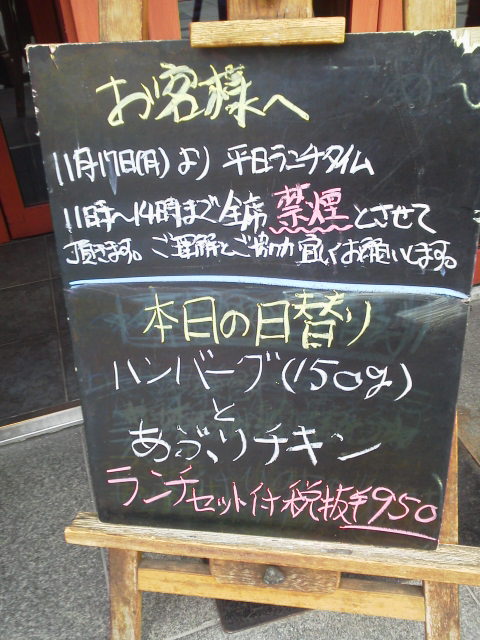 お客様へ
11月17日(月)より 平日ランチタイム
11時〜14時まで全席禁煙とさせて
頂きます。ご理解とご協力宜しくお願いします。
本日の日替り
ハンバーグ(150g)
と
あぶりチキン
ランチセット付 税抜¥950